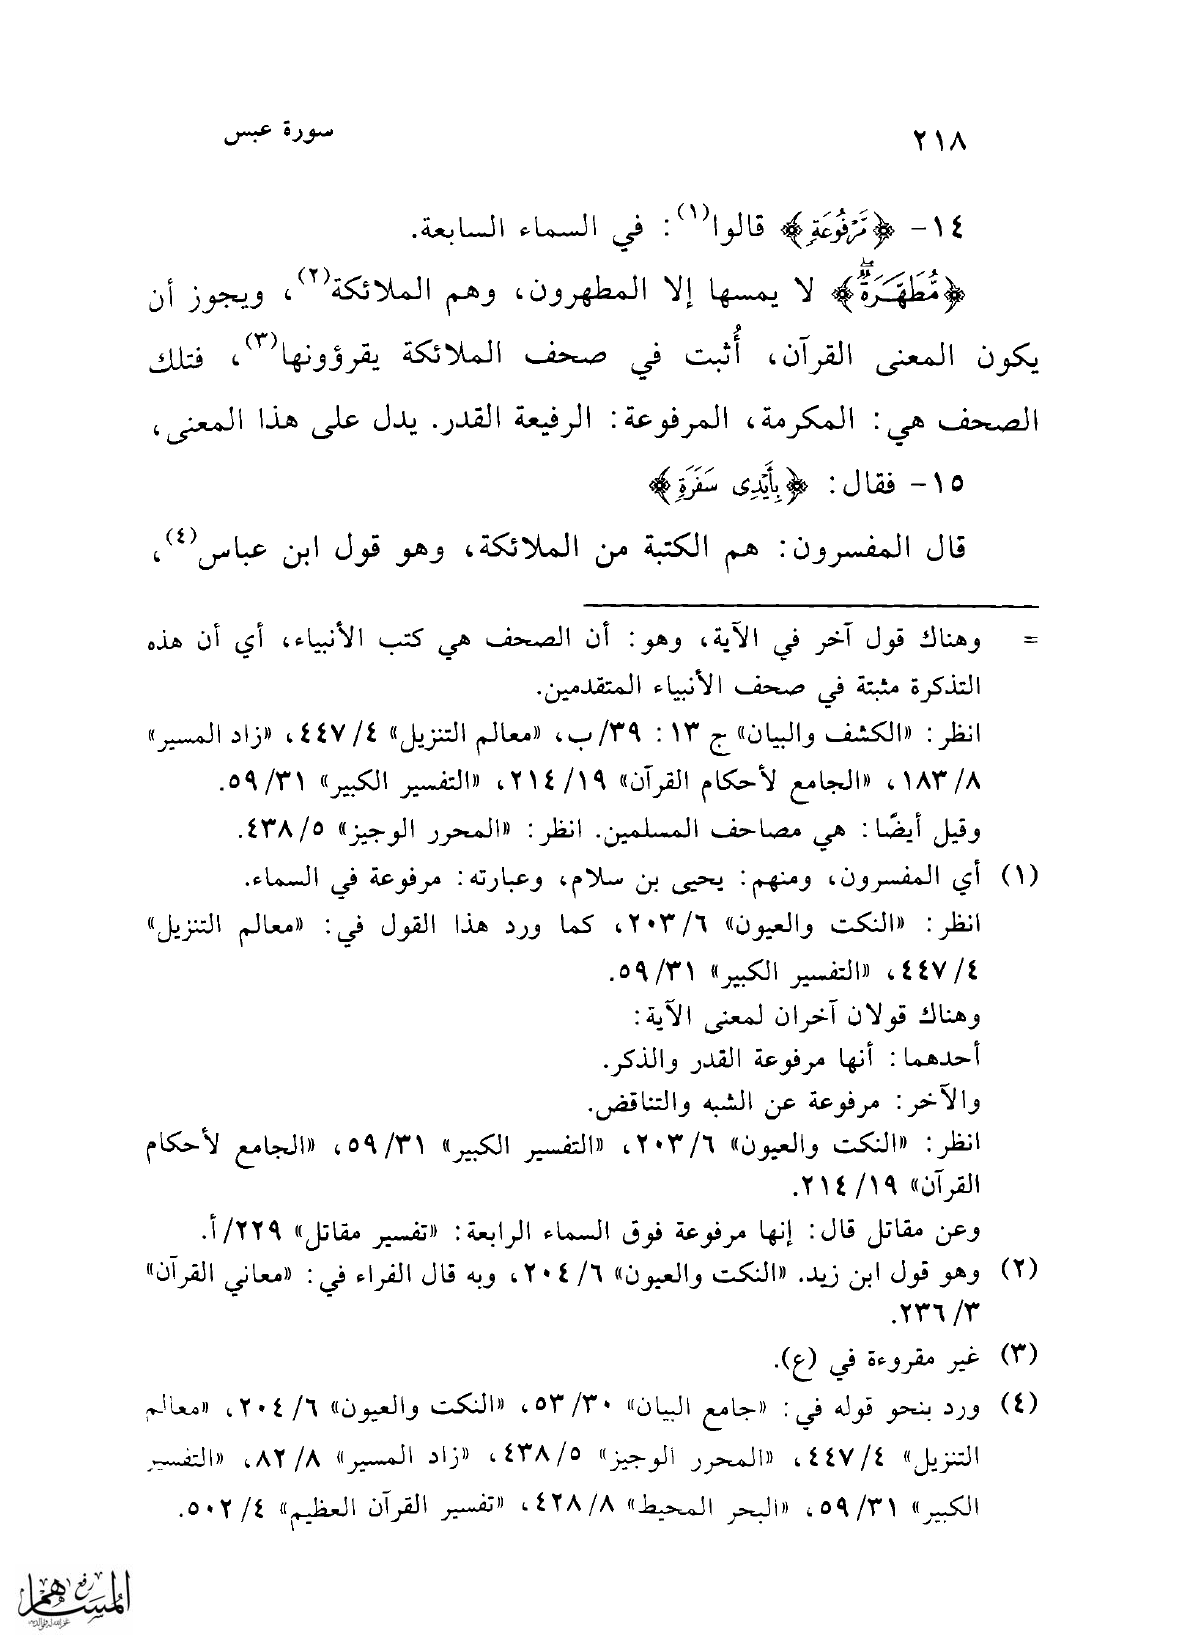 ٢١٨
سورة عبس
١٤- ﴿مَّرْفُوعَةٍ﴾ قالوا(١): في السماء السابعة.
﴿مُّطَهَّرَةٍۭ﴾ لا يمسها إلا المطهرون، وهم الملائكة(٢)، ويجوز أن
يكون المعنى القرآن، أُثبت في صحف الملائكة يقرؤونها(٣)، فتلك
الصحف هي: المكرمة، المرفوعة: الرفيعة القدر. يدل على هذا المعنى،
١٥- فقال: ﴿بِأَيْدِى سَفَرَةٍ﴾
قال المفسرون: هم الكتبة من الملائكة، وهو قول ابن عباس(٤)،
= وهناك قول آخر في الآية، وهو: أن الصحف هي كتب الأنبياء، أي أن هذه
التذكرة مثبتة في صحف الأنبياء المتقدمين.
انظر: «الكشف والبيان» ج ١٣: ٣٩/ب، «معالم التنزيل» ٤/٤٤٧، «زاد المسير»
٨/١٨٣، «الجامع لأحكام القرآن» ١٩/٢١٤، «التفسير الكبير» ٣١/٥٩.
وقيل أيضًا: هي مصاحف المسلمين. انظر: «المحرر الوجيز» ٥/٤٣٨.
(١) أي المفسرون، ومنهم: يحيى بن سلام، وعبارته: مرفوعة في السماء.
انظر: «النكت والعيون» ٦/٢٠٣، كما ورد هذا القول في: «معالم التنزيل»
٤/٤٤٧، «التفسير الكبير» ٣١/٥٩.
وهناك قولان آخران لمعنى الآية:
أحدهما: أنها مرفوعة القدر والذكر.
والآخر: مرفوعة عن الشبه والتناقض.
انظر: «النكت والعيون» ٦/٢٠٣، «التفسير الكبير» ٣١/٥٩، «الجامع لأحكام
القرآن» ١٩/٢١٤.
وعن مقاتل قال: إنها مرفوعة فوق السماء الرابعة: «تفسير مقاتل» ٢٢٩/أ.
(٢) وهو قول ابن زيد. «النكت والعيون» ٦/٢٠٤، وبه قال الفراء في: «معاني القرآن»
٣/٢٣٦.
(٣) غير مقروءة في (ع).
(٤) ورد بنحو قوله في: «جامع البيان» ٣٠/٥٣، «النكت والعيون» ٦/٢٠٤، «معالم
التنزيل» ٤/٤٤٧، «المحرر الوجيز» ٥/٤٣٨، «زاد المسير» ٨/٨٢، «التفسير
الكبير» ٣١/٥٩، «البحر المحيط» ٨/٤٢٨، «تفسير القرآن العظيم» ٤/٥٠٢.
رفع
المساهم